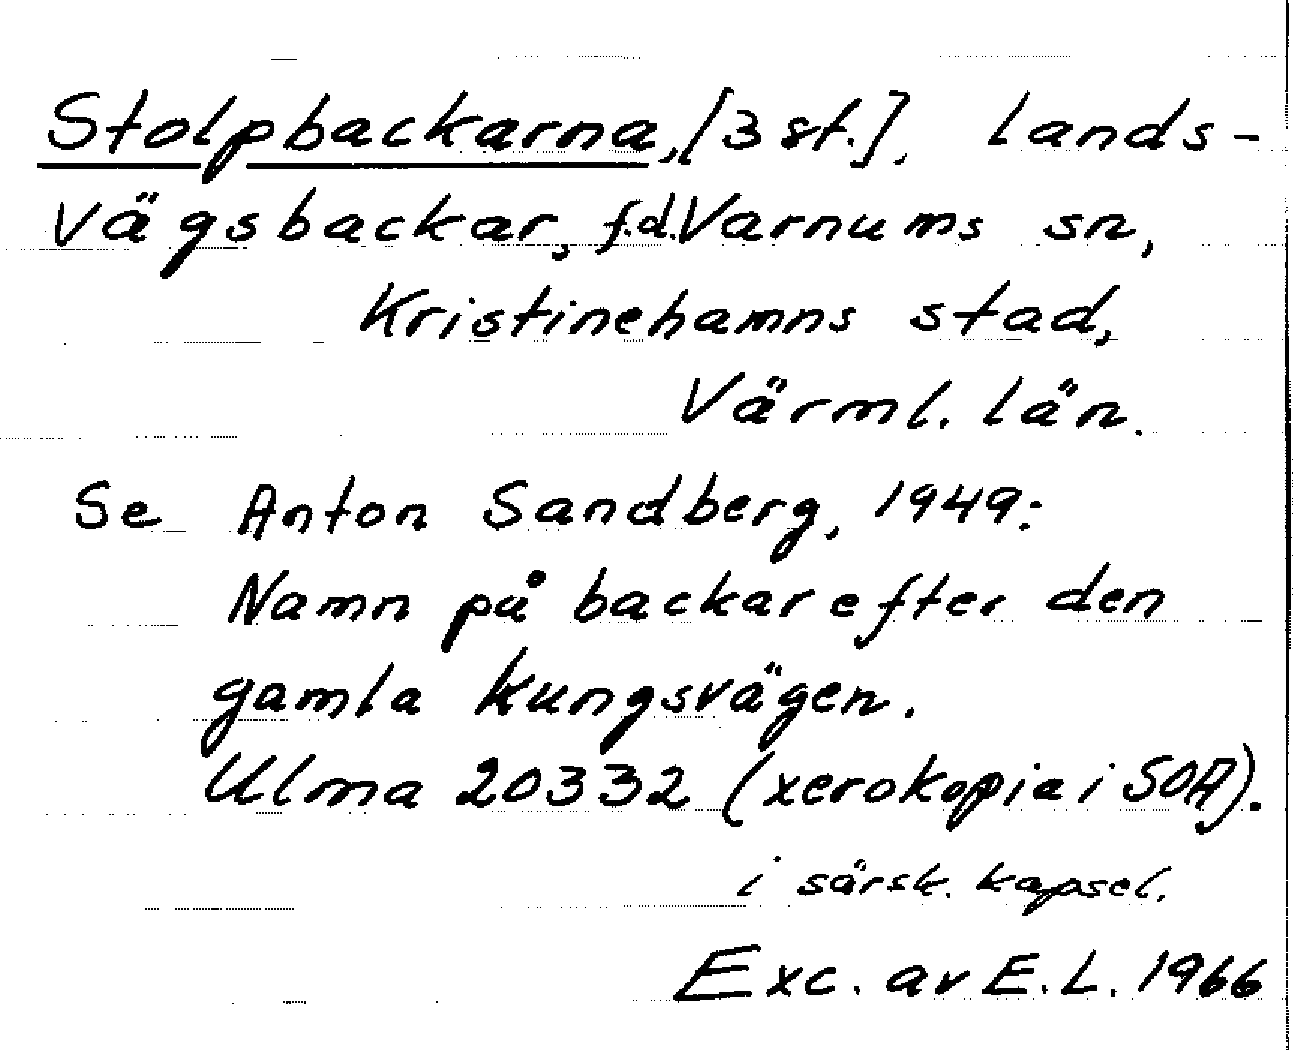 Stolpbackarna, [3 st.], lands-
vägsbackar, f.d. Varnums sn,
Kristinehamns stad,
Värml. län.
Se Anton Sandberg, 1949:
Namn på backar efter den
gamla kungsvägen.
Ulma 20332 (xerokopia i SOA).
i särsk. kapsel.
Exc. av E.L. 1966